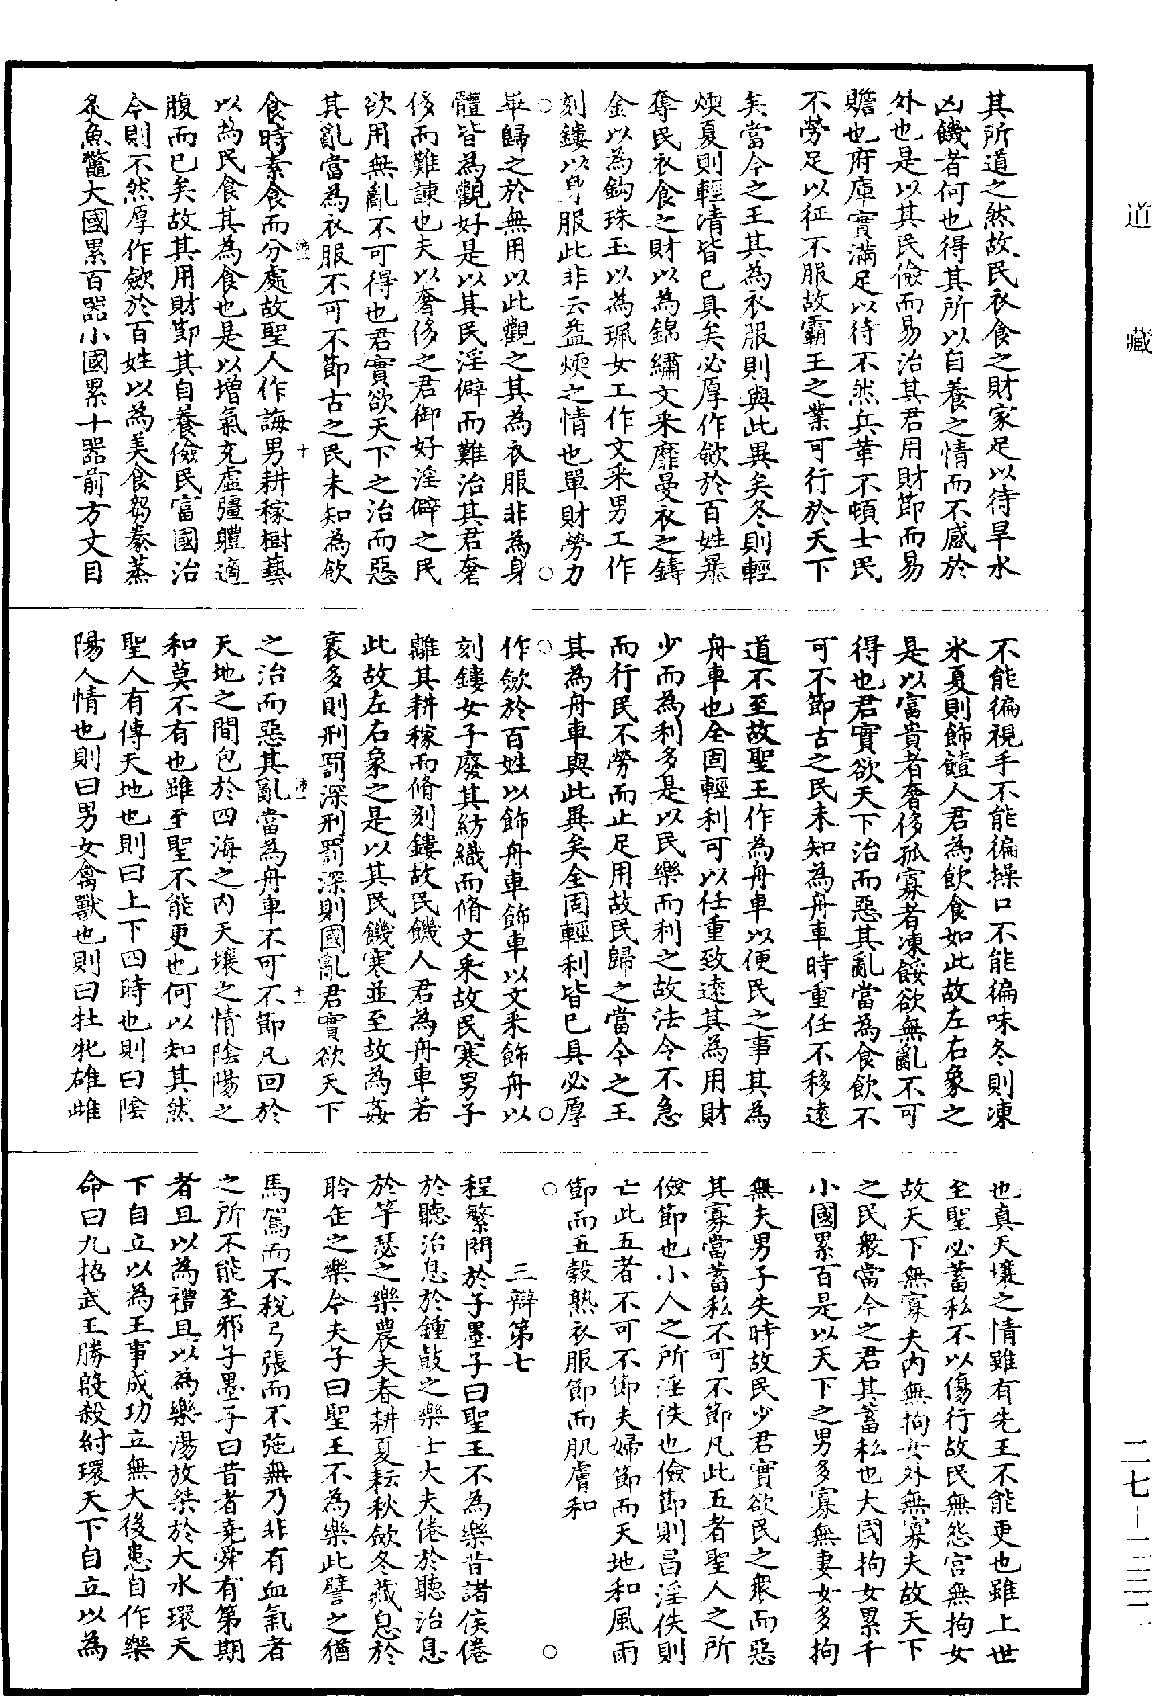 道藏
二七－二三二
其所道之然故民衣食之財家足以待旱水
凶饑者何也得其所以自養之情而不感於
外也是以其民儉而易治其君用財節而易
贍也府庫實滿足以待不然兵革不頓士民
不勞足以征不服故霸王之業可行於天下
矣當今之王其為衣服則與此異矣冬則輕
煗夏則輕清皆已具矣必厚作斂於百姓暴
奪民衣食之財以為錦繡文采靡曼衣之鑄
金以為鈎珠玉以為珮女工作文采男工作
刻鏤以身服此非云益煗之情也單財勞力
畢歸之於無用以此觀之其為衣服非為身
體皆為觀好是以其民淫僻而難治其君奢
侈而難諫也夫以奢侈之君御好淫僻之民
欲用無亂不可得也君實欲天下之治而惡
其亂當為衣服不可不節古之民未知為飲
食時素食而分處故聖人作誨男耕稼樹藝
以為民食其為食也是以增氣充虛彊體適
腹而已矣故其用財節其自養儉民富國治
今則不然厚作斂於百姓以為美食芻豢蒸
炙魚鼈大國累百器小國累十器前方丈目
不能徧視手不能徧操口不能徧味冬則凍
氷夏則飾饐人君為飲食如此故左右象之
是以富貴者奢侈孤寡者凍餒欲無亂不可
得也君實欲天下治而惡其亂當為食飲不
可不節古之民未知為舟車時重任不移遠
道不至故聖王作為舟車以便民之事其為
舟車也全固輕利可以任重致遠其為用財
少而為利多是以民樂而利之故法令不急
而行民不勞而止足用故民歸之當今之王
其為舟車與此異矣全固輕利皆已具必厚
作斂於百姓以飾舟車飾車以文采飾舟以
刻鏤女子廢其紡織而脩文采故民寒男子
離其耕稼而脩刻鏤故民饑人君為舟車若
此故左右象之是以其民饑寒並至故為姦
衺多則刑罰深刑罰深則國亂君實欲天下
之治而惡其亂當為舟車不可不節凡回於
天地之間包於四海之內天壤之情陰陽之
和莫不有也雖至聖不能更也何以知其然
聖人有傳天地也則曰上下四時也則曰陰
陽人情也則曰男女禽獸也則曰牡牝雄雌
也真天壤之情雖有先王不能更也雖上世
至聖必蓄私不以傷行故民無怨宫無拘女
故天下無寡夫內無拘女外無寡夫故天下
之民衆當今之君其蓄私也大國拘女累千
小國累百是以天下之男多寡無妻女多拘
無夫男子失時故民少君實欲民之衆而惡
其寡當蓄私不可不節凡此五者聖人之所
儉節也小人之所淫佚也儉節則昌淫佚則
亡此五者不可不節夫婦節而天地和風雨
節而五穀熟衣服節而肌膚和
三辯第七
程繁問於子墨子曰聖王不為樂昔諸侯倦
於聽治息於鍾鼓之樂士大夫倦於聽治息
於竽瑟之樂農夫春耕夏耘秋斂冬藏息於
聆缶之樂今夫子曰聖王不為樂此譬之猶
馬駕而不稅弓張而不弛無乃非有血氣者
之所不能至邪子墨子曰昔者堯舜有第期
者且以為禮且以為樂湯放桀於大水環天
下自立以為王事成功立無大後患自作樂
命曰九招武王勝殷殺紂環天下自立以為